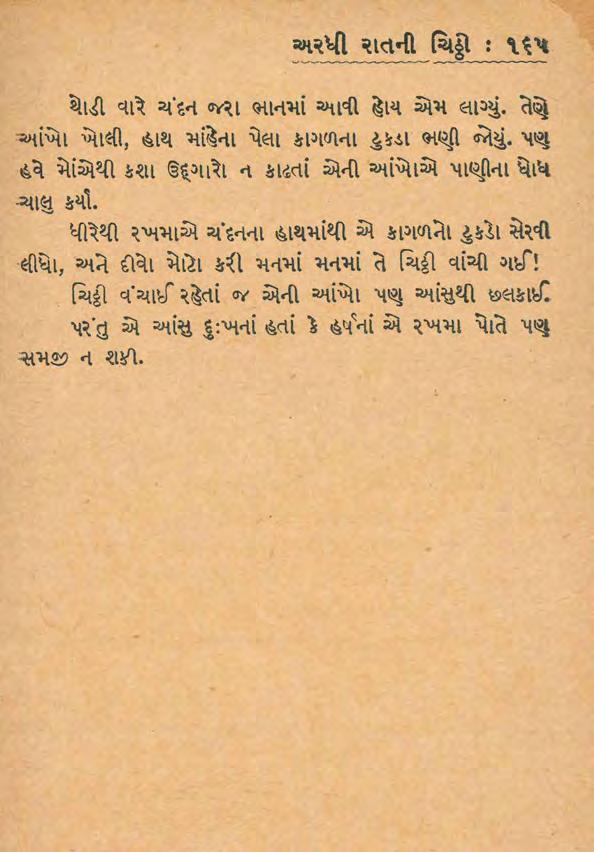 અરધી રાતની ચિઠ્ઠી : ૧૬૫
થોડી વારે ચંદન જરા ભાનમાં આવી હોય એમ લાગ્યું. તેણે
આંખો ખોલી, હાથ માંહેના પેલા કાગળના ટુકડા ભણી જોયું. પણ
હવે મોંએથી કશા ઉદ્ગારો ન કાઢતાં એની આંખોએ પાણીના ધોધ
ચાલુ કર્યા.
ધીરેથી રખમાએ ચંદનના હાથમાંથી એ કાગળનો ટુકડો સેરવી
લીધો, અને દીવો મોટો કરી મનમાં મનમાં તે ચિઠ્ઠી વાંચી ગઈ!
ચિઠ્ઠી વંચાઈ રહેતાં જ એની આંખો પણ આંસુથી છલકાઈ.
પરંતુ એ આંસુ દુઃખનાં હતાં કે હર્ષનાં એ રખમા પોતે પણ
સમજી ન શકી.